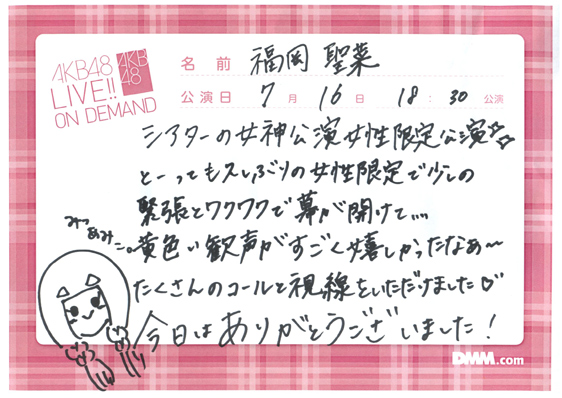 AKB48
LIVE!!
ON DEMAND
AKB
48
名前 福岡 聖菜
公演日 7月16日 18:30公演
シアターの女神公演女性限定公演☆☆
とーっても久しぶりの女性限定で少しの
緊張とワクワクで幕が開けて…
黄色い歓声がすごく嬉しかったなぁ〜
たくさんのコールと視線をいただけました♡
今日はありがとうございました!
みつ
あみ
こ。
DMM.com